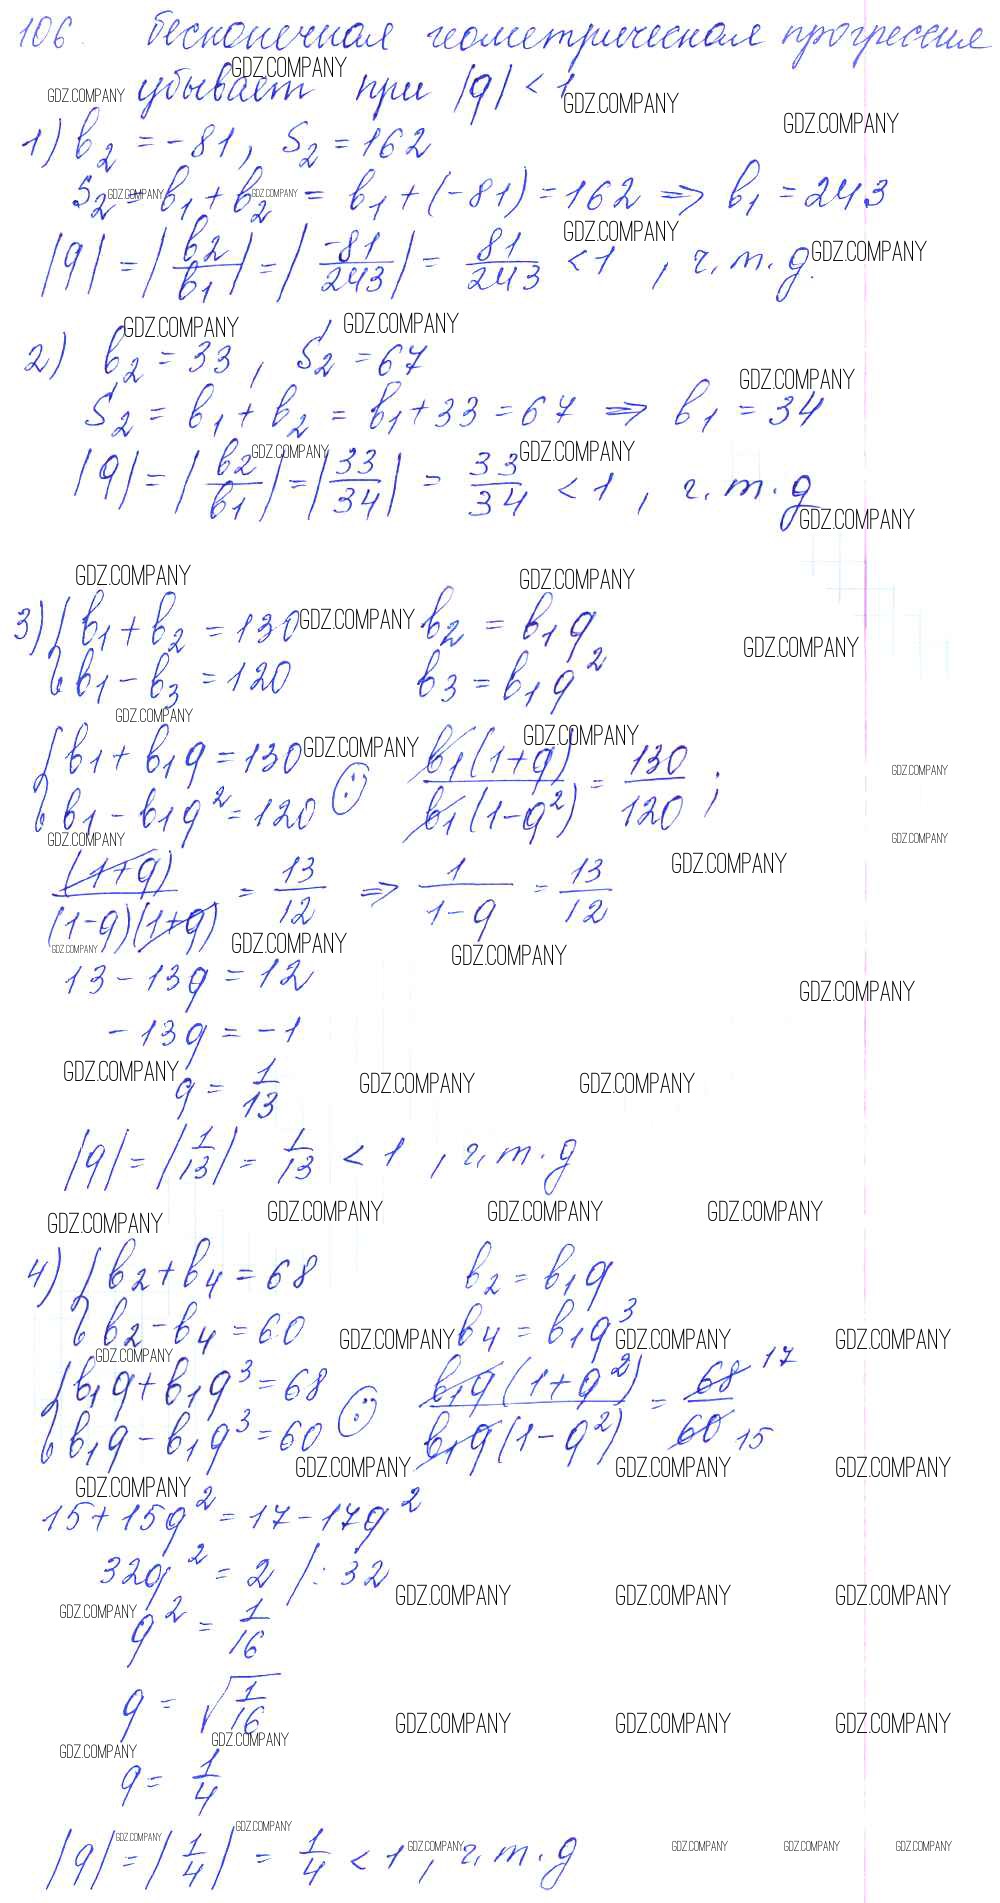 106. бесконечная геометрическая прогрессия
убывает при |q| < 1
1) b₂ = -81, S₂ = 162
S₂ = b₁ + b₂ = b₁ + (-81) = 162 => b₁ = 243
|q| = |b₂/b₁| = |-81/243| = 81/243 < 1, ч.т.д.
2) b₂ = 33, S₂ = 67
S₂ = b₁ + b₂ = b₁ + 33 = 67 => b₁ = 34
|q| = |b₂/b₁| = |33/34| = 33/34 < 1, ч.т.д
3) { b₁ + b₂ = 130 b₂ = b₁q
b₁ - b₃ = 120 b₃ = b₁q²
{ b₁ + b₁q = 130 b₁(1+q)/b₁(1-q²) = 130/120;
b₁ - b₁q² = 120 (:)
(1+q)/(1-q)(1+q) = 13/12 => 1/1-q = 13/12
13 - 13q = 12
-13q = -1
q = 1/13
|q| = |1/13| = 1/13 < 1, ч.т.д
4) { b₂ + b₄ = 68 b₂ = b₁q
b₂ - b₄ = 60 b₄ = b₁q³
{ b₁q + b₁q³ = 68 b₁q(1+q²)/b₁q(1-q²) = 68/60 17/15
b₁q - b₁q³ = 60 (:)
15 + 15q² = 17 - 17q²
32q² = 2 |: 32
q² = 1/16
q = √1/16
q = 1/4
|q| = |1/4| = 1/4 < 1, ч.т.д
GDZ.COMPANY